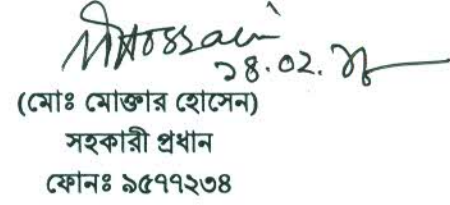 MHossain
১৪.০২.
(মোঃ মোক্তার হোসেন)
সহকারী প্রধান
ফোনঃ ৯৫৭৭২৩৪